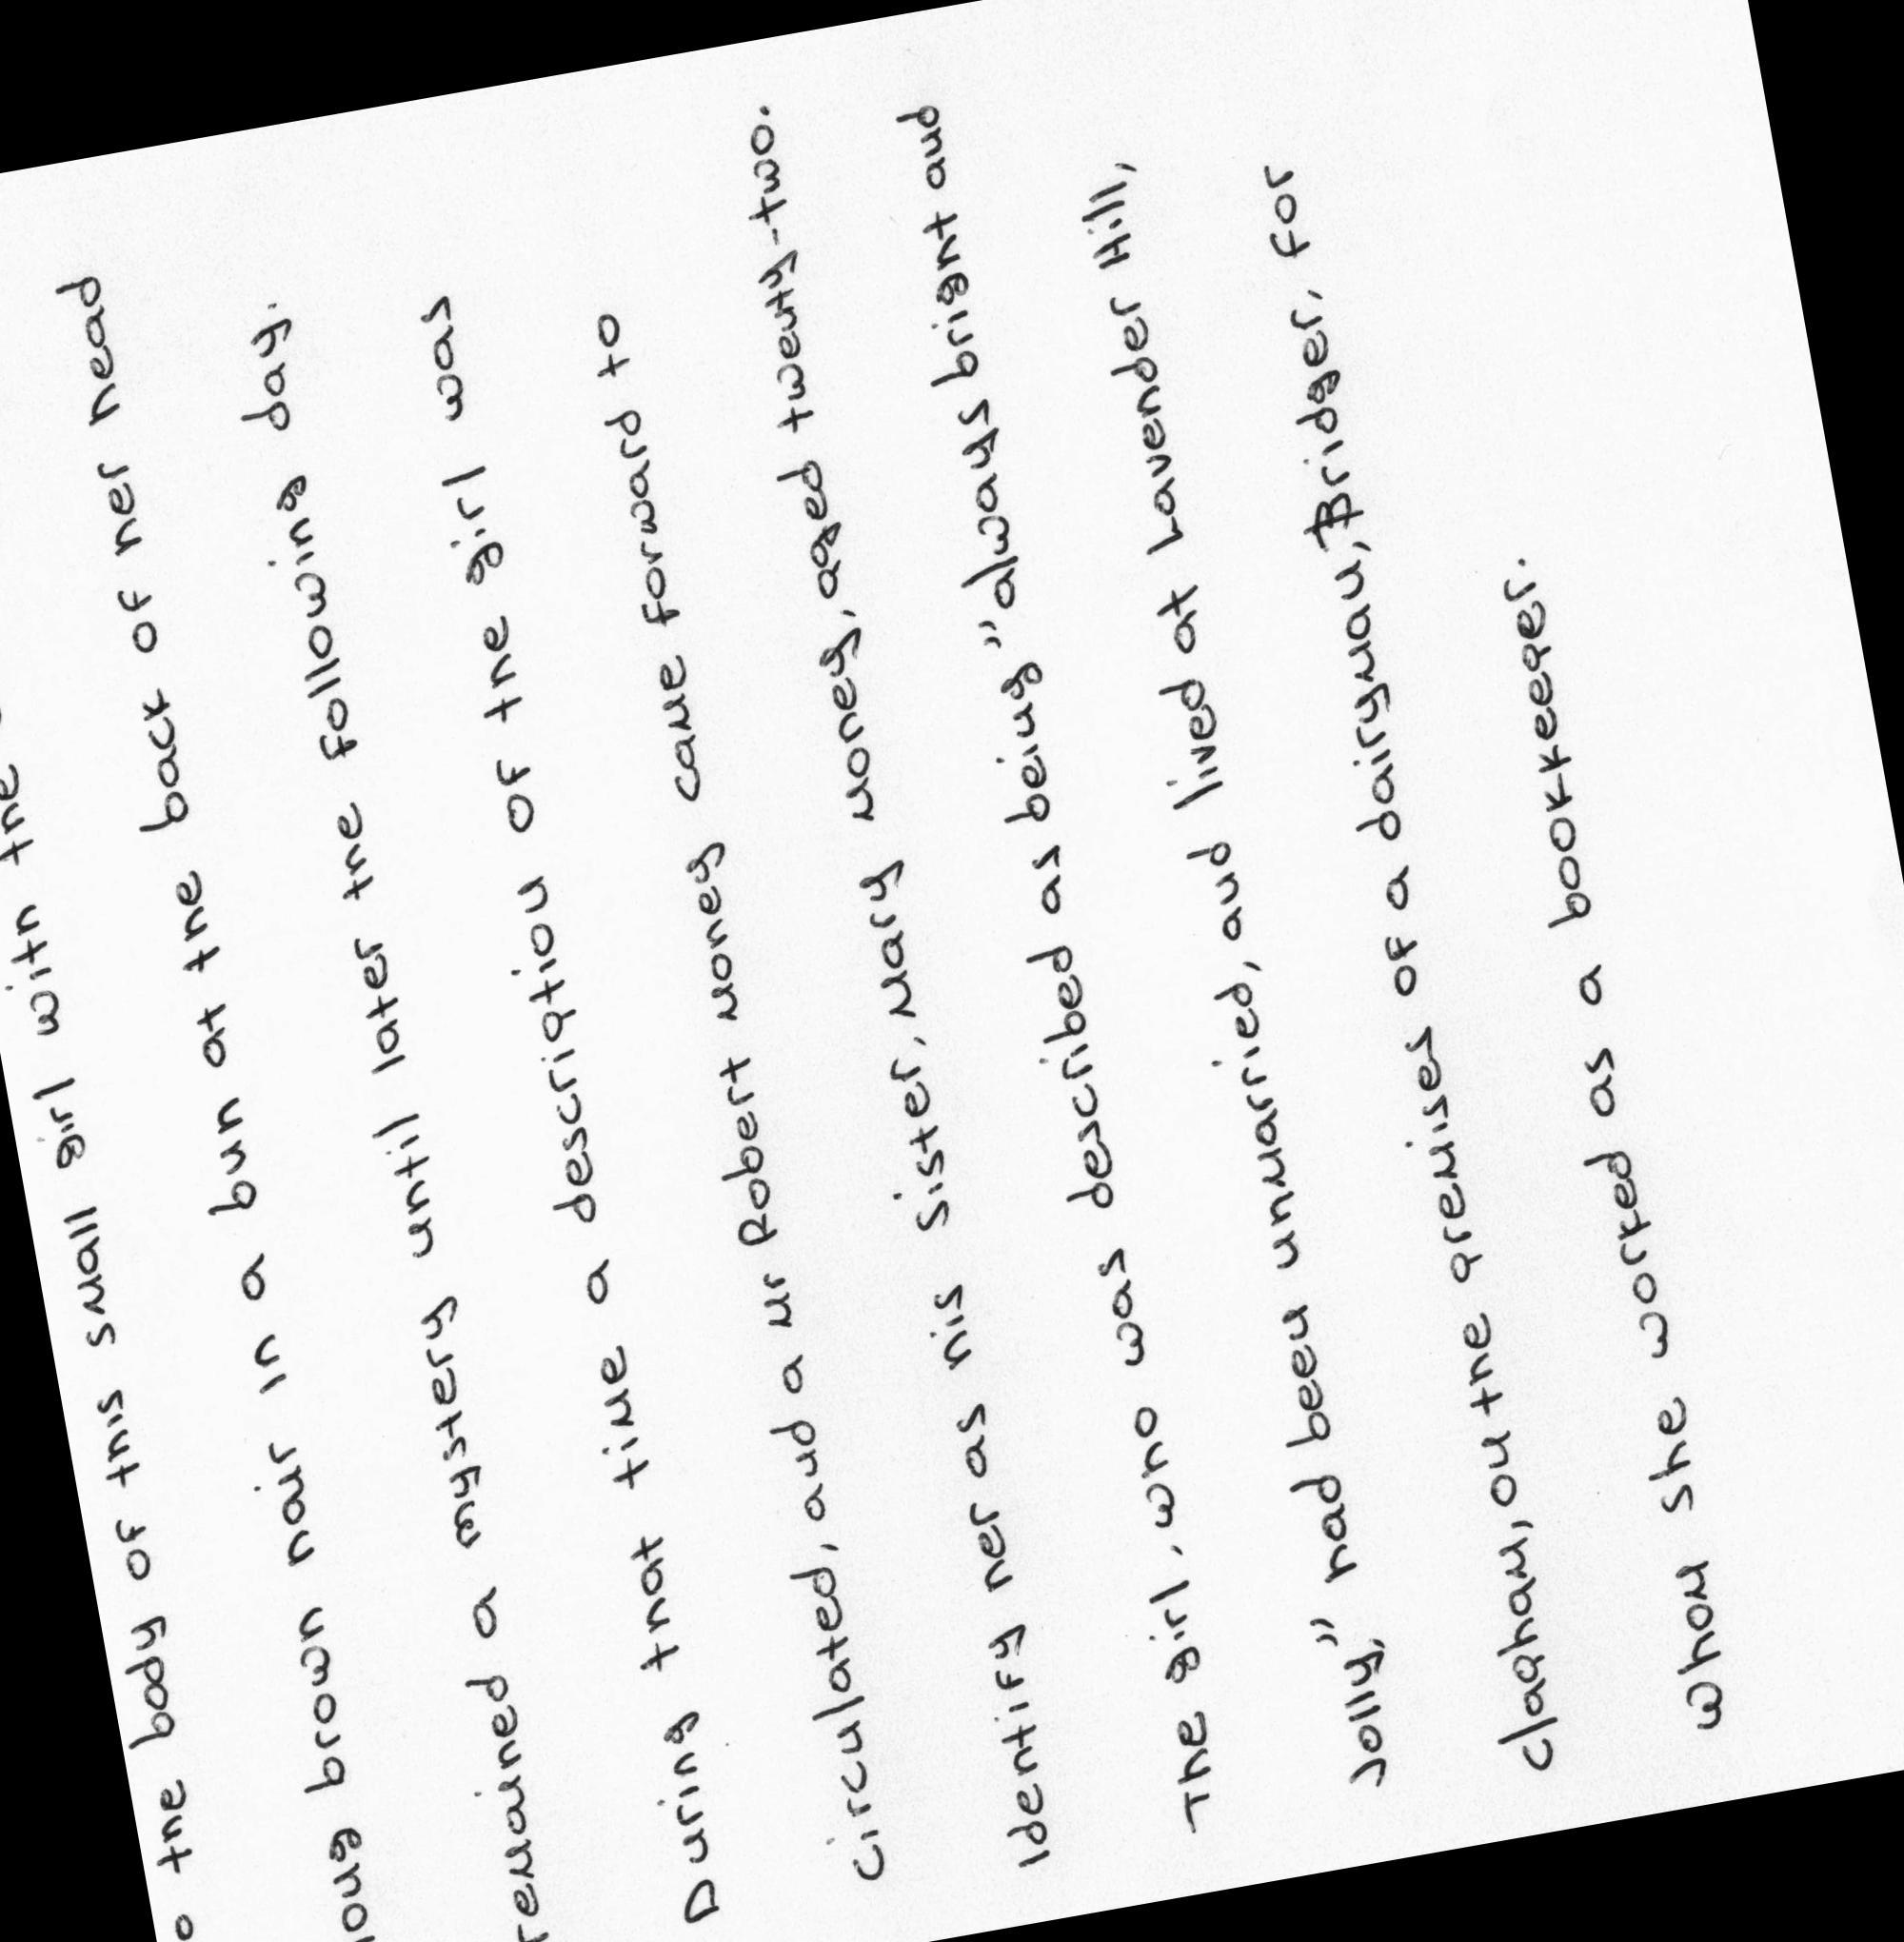 the body of this small girl with the
long brown hair in a bun at the back of her head
remained a mystery until later the following day.
During that time a description of the girl was
circulated, and a Mr Robert Money came forward to
identify her as his sister, Mary Money, aged twenty-two.
The girl, who was described as being "always bright and
Jolly," had been unmarried, and lived at Lavender Hill,
Clapham, on the premises of a dairyman, Bridger, for
whom she worked as a bookkeeper.